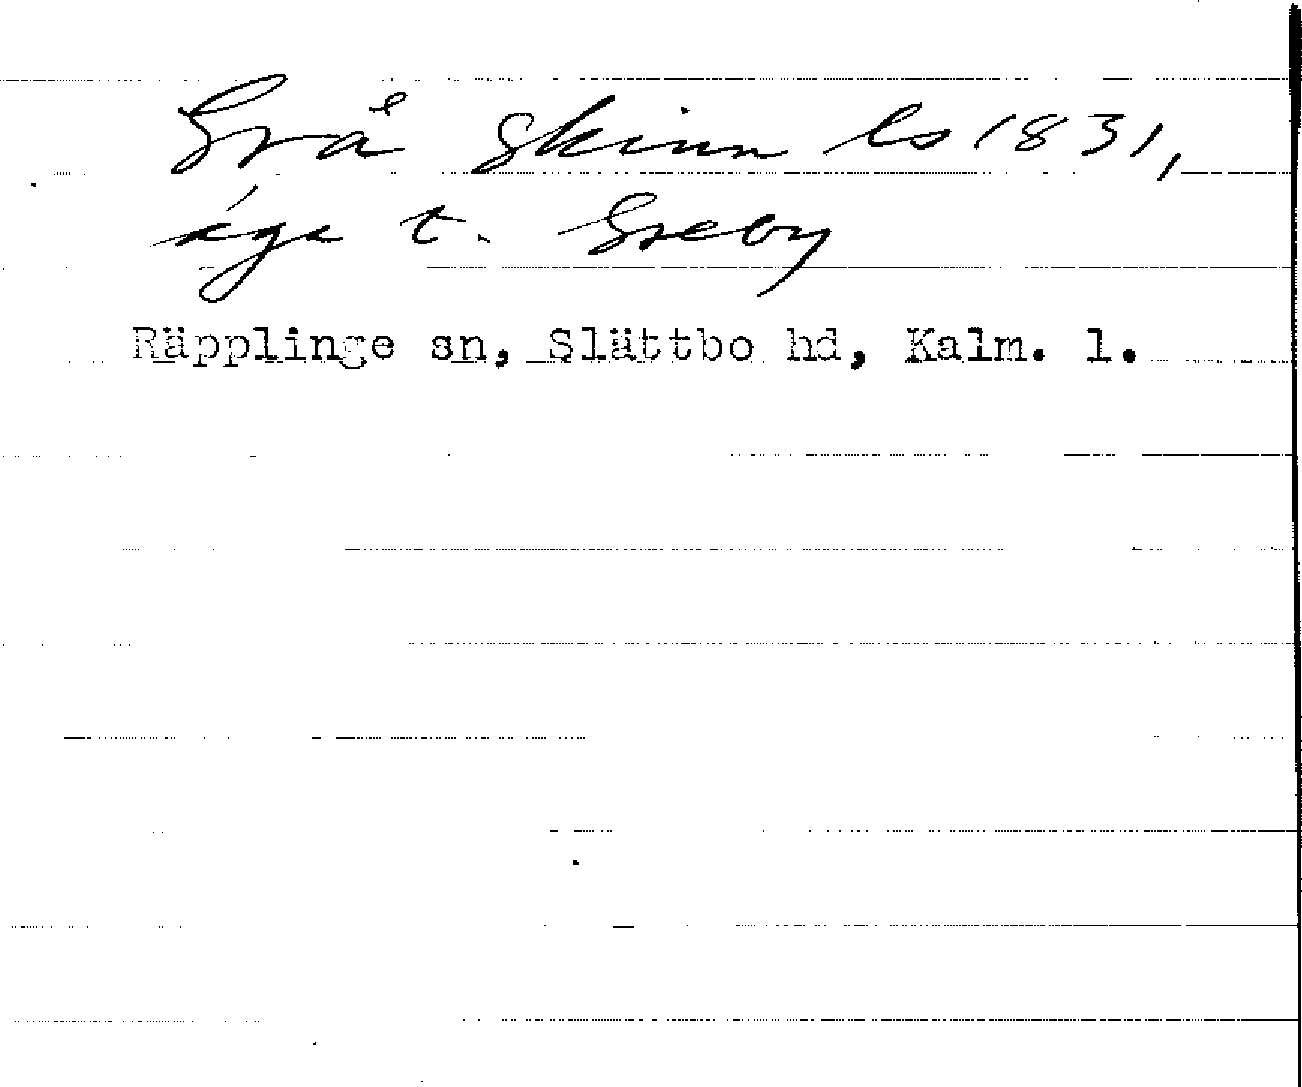 Grå Skinn ls 1831,
äga t. Greby
Räpplinge sn, Slättbo hd, Kalm. l.